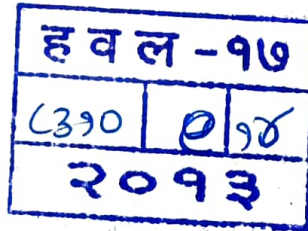 ह व ल - १७
८३१० १४
२०१३